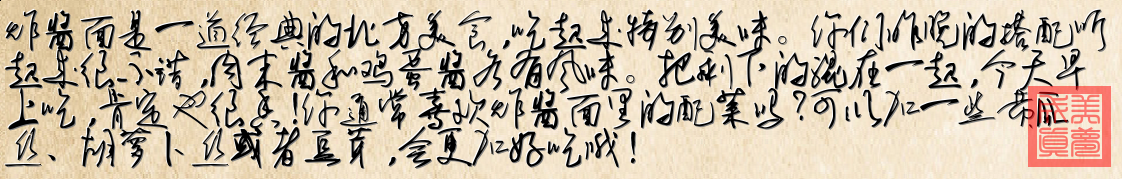 炸酱面是一道经典的北方美食，吃起来特别美味。你们昨晚的搭配听
起来很不错，肉末酱和鸡蛋酱各有风味。把剩下的混在一起，今天早
上吃，肯定也很香！你通常喜欢炸酱面里的配菜吗？可以加一些黄瓜
丝、胡萝卜丝或者豆芽，会更加好吃哦！
美梦成真